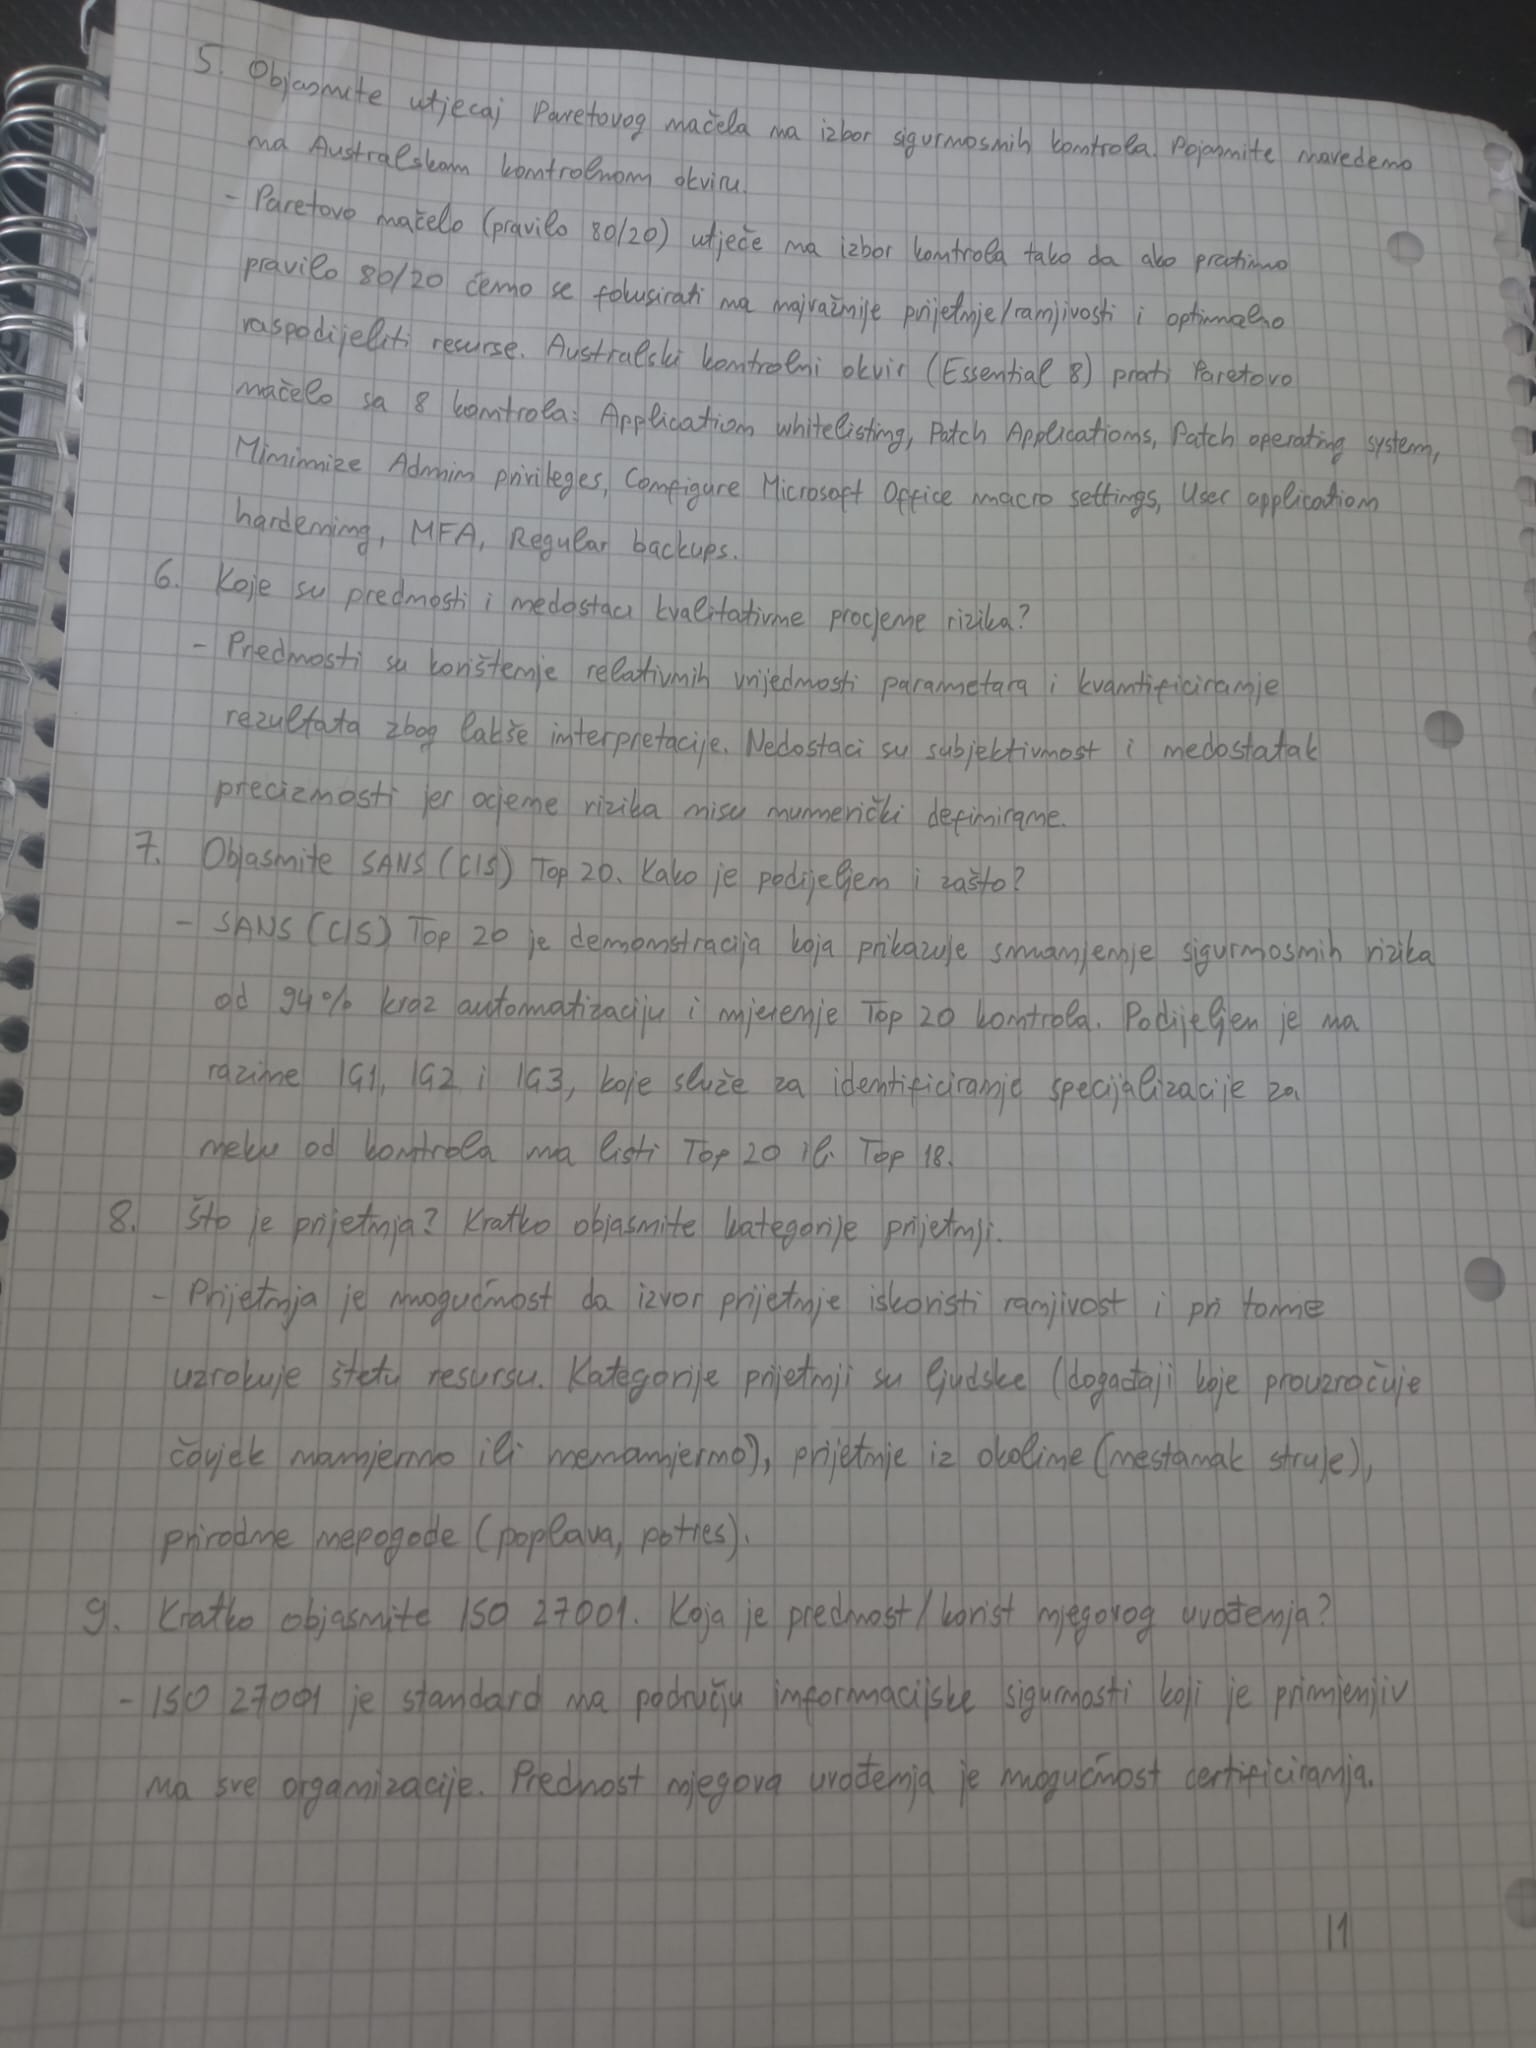 5. Objasnite utjecaj Paretovog načela na izbor sigurnosnih kontrola. Pojasnite navedeno
na Australskom kontrolnom okviru.
- Paretovo načelo (pravilo 80/20) utječe na izbor kontrola tako da ako pratimo
pravilo 80/20 ćemo se fokusirati na najvažnije prijetnje/ranjivosti i optimalno
raspodijeliti resurse. Australski kontrolni okvir (Essential 8) prati Paretovo
načelo sa 8 kontrola: Application whitelisting, Patch Applications, Patch operating system,
Minimize Admin privileges, Configure Microsoft Office macro settings, User application
hardening, MFA, Regular backups.
6. Koje su prednosti i nedostaci kvalitativne procjene rizika?
- Prednosti su korištenje relativnih vrijednosti parametara i kvantificiranje
rezultata zbog lakše interpretacije. Nedostaci su subjektivnost i nedostatak
preciznosti jer ocjene rizika nisu numerički definirane.
7. Objasnite SANS (CIS) Top 20. Kako je podijeljen i zašto?
- SANS (CIS) Top 20 je demonstracija koja prikazuje smanjenje sigurnosnih rizika
od 94% kroz automatizaciju i mjerenje Top 20 kontrola. Podijeljen je na
razine IG1, IG2 i IG3, koje služe za identificiranje specijalizacije za
neku od kontrola na listi Top 20 ili Top 18.
8. Što je prijetnja? Kratko objasnite kategorije prijetnji.
- Prijetnja je mogućnost da izvor prijetnje iskoristi ranjivost i pri tome
uzrokuje štetu resursu. Kategorije prijetnji su ljudske (događaji koje prouzročuje
čovjek namjerno ili nenamjerno), prijetnje iz okoline (nestanak struje),
prirodne nepogode (poplava, potres).
9. Kratko objasnite ISO 27001. Koja je prednost/korist njegovog uvođenja?
- ISO 27001 je standard na području informacijske sigurnosti koji je primjenjiv
na sve organizacije. Prednost njegova uvođenja je mogućnost certificiranja.
11